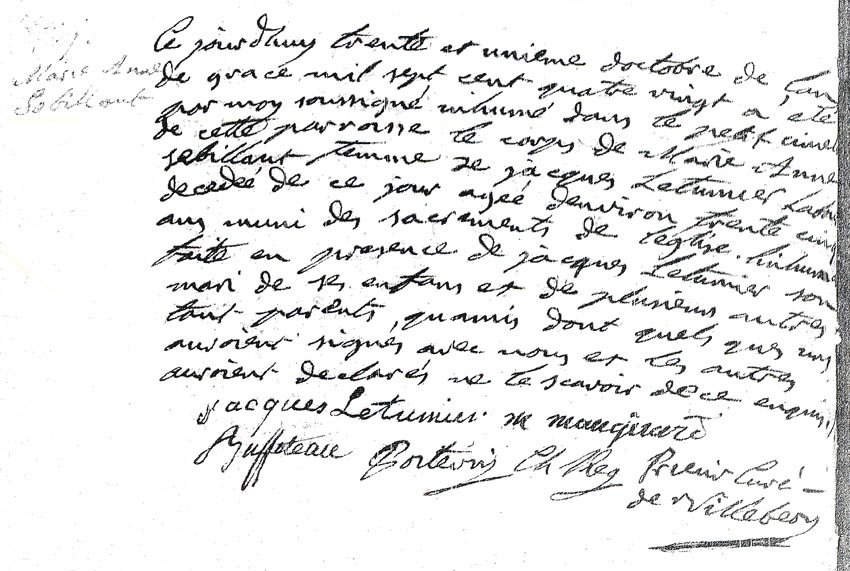 Marie Anne
Sebillaut
Ce jourdhuy trente et unieme doctobre de lan
de grace mil sept cent quatre vingt a été
par moy soussigné inhumé dans le petit cimet
de cette parroisse le corps de Marie Anne
sebillaut femme de jacques Letumier Labou
decedée de ce jour ageé denviron trente cinq
ans muni des sacrements de leglise. Linhuma
faite en presence de jacques Letumier son
mari de ses enfans et de plusieurs autres
tant parents, quamis dont quels ques uns
auroient signés avec nous et les autres
auroient declarés ne le scavoir de ce enquis.
jacques Letumier. m mauginard
Buffeteau Ch Reg Prieur Curé
de Villebery